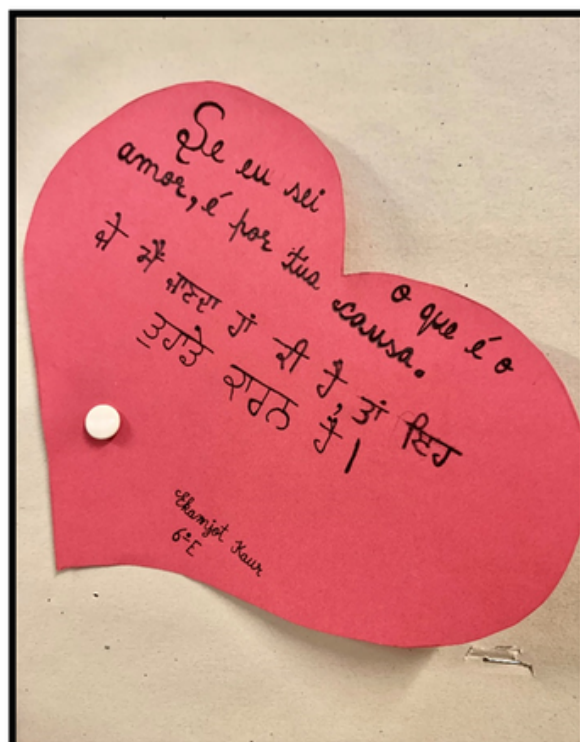 Se eu sei o que é o
amor, é por tua causa.
ਜੇ ਮੈਂ ਜਾਣਦਾ ਹਾਂ ਕੀ ਹੈ, ਤਾਂ ਇਹ
ਤੁਹਾਡੇ ਕਾਰਨ ਹੈ।
Ekamjot Kaur
6ºE